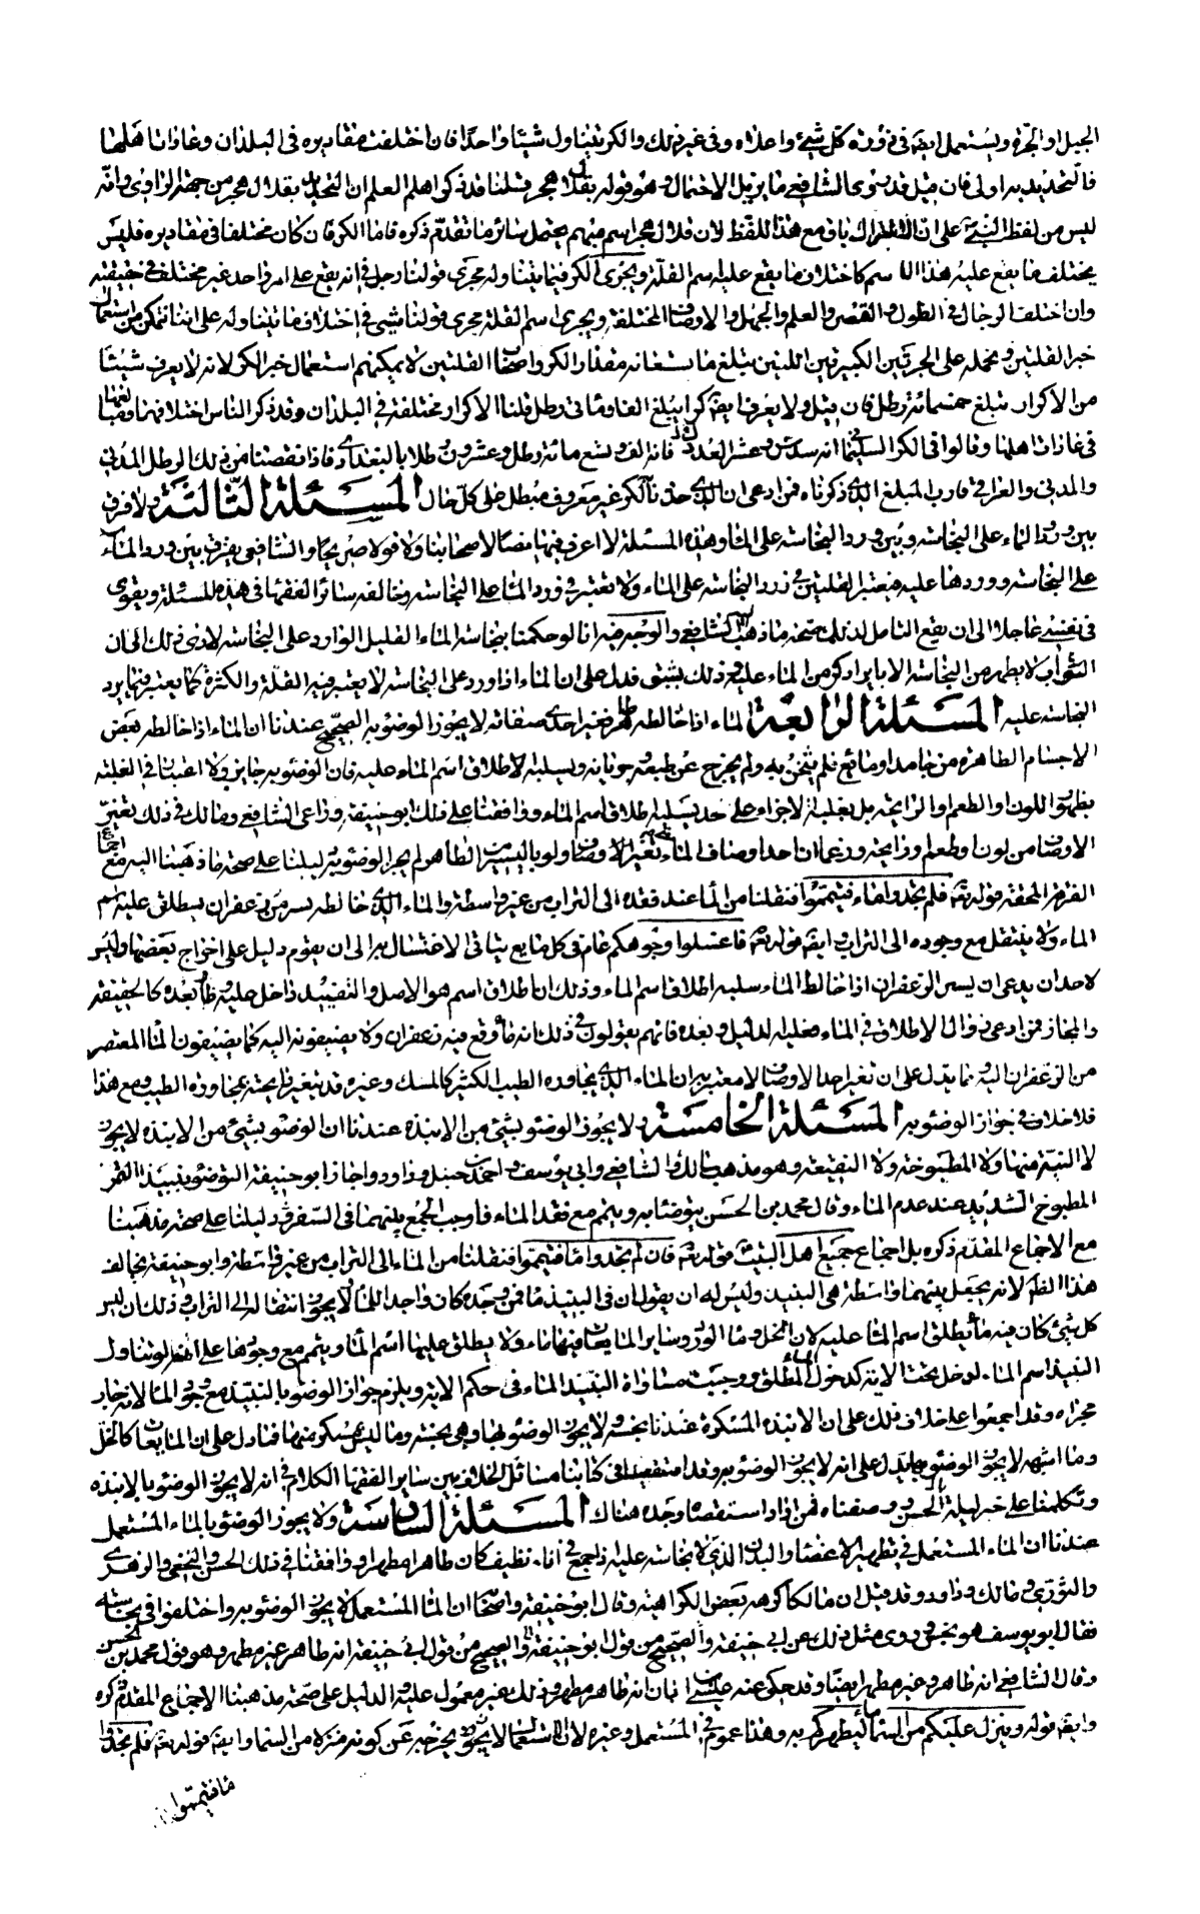 الجبل او الجرة ويستعمل ايضا في ذروة كل شيء واعلاه وفي غير ذلك والكر يتناول شيئا واحدا فان اختلفت مقاديره في البلدان وعاداتا هلها
فالتحديد به اولى فان قيل قد روى الشافعي ما يزيل الاحتمال وهو قوله بقلال هجر قلنا قد ذكر اهل العلم ان التحديد بقلال هجر من جهة الراوى وانه
ليس من لفظ النبي على ان الاشتراك باق مع هذا اللفظ لان قلال هجر اسم مبهم يحتمل سائر ما تقدم ذكره فاما الكر فان كان مختلفا في مقاديره فليس
يختلف ما يقع عليه هذا الاسم كاختلاف ما يقع عليه اسم القلة ويجرى الكر فيما يتناوله مجرى قولنا رجل في انه يقع على امر واحد غير مختلف في حقيقته
وان اختلف الرجال في الطول والقصر والعلم والجهل والاوصاف المختلفة ويجرى اسم القلة مجرى قولنا شيء في اختلاف ما يتناوله على اننا نتمكن من استعمال
خبر القلتين ونحمله على الجرتين الكبيرتين اللتين تبلغ ما تسعانه مقدار الكر واصحاب القلتين لا يمكنهم استعمال خبر الكر لانه لا يعرف شيئا
من الاكرار تبلغ خمسمائة رطل فان قيل ولا يعرف ايضا كرا يبلغ الفا ومائتى رطل قلنا الاكرار مختلفة في البلدان وقد ذكر الناس اختلافها ومبالغها
في عادات اهلها وقالوا في الكر السليماني انه سدس وعشر العدل فانه الف وتسع مائة رطل وعشرون رطلا بالبغدادى فاذا نقصنا من ذلك الرطل المدني
والمدني والعراقي قارب المبلغ الذي ذكرناه فمن ادعى ان الذي حددنا به الكر غير معروف مبطل على كل حال المسئلة الثالثة ولا فرق
بين ورود الماء على النجاسة وبين ورود النجاسة على الماء وهذه المسئلة لا اعرف فيها نصا لاصحابنا ولا قولا صريحا والشافعي يفرق بين ورود الماء
على النجاسة وورودها عليه فيعتبر القلتين في ورود النجاسة على الماء ولا يعتبر في ورود الماء على النجاسة وخالفه سائر الفقهاء في هذه المسئلة ويقوى
في نفسي عاجلا الى ان يقع التامل لذلك صحة ما ذهب اليه الشافعي والوجه فيه انا لو حكمنا بنجاسة الماء القليل الوارد على النجاسة لادى ذلك الى ان
الثوب لا يطهر من النجاسة الا بايراد كر من الماء عليه وذلك يشق فدل على ان الماء اذا ورد على النجاسة لا يعتبر فيه القلة والكثرة كما يعتبر فيما يرد
النجاسة عليه المسئلة الرابعة الماء اذا خالطه طاهر فغير احدى صفاته لا يجوز الوضوء به الصحيح عندنا ان الماء اذا خالطه بعض
الاجسام الطاهرة من جامد او مائع فلم يثخن به ولم يخرج عن طبعه وجريانه ويسلبه لاطلاق اسم الماء عليه فان الوضوء به جايز ولا اعتبار في الغلبة
بظهور اللون او الطعم او الرايحة بل بغلبة الاجزاء على حد يسلبه اطلاق اسم الماء ووافقنا على ذلك ابو حنيفة وراعى الشافعي ومالك في ذلك تغير
الاوصاف من لون او طعم او رايحة وزعما ان احد اوصاف الماء متى تغير الاوصاف ولو باليسير من الطاهر لم يجز الوضوء به دليلنا على صحة ما ذهبنا اليه مع اجماع
الفرقة المحقة قوله تعالى فلم تجدوا ماء فتيمموا فنقلنا من الماء عند فقده الى التراب من غير واسطة والماء الذي خالطه يسير من زعفران يطلق عليه اسم
الماء ولا ينتقل مع وجوده الى التراب وايضا قوله تعالى فاغسلوا وجوهكم عام في كل مايع يتاتى الاغتسال به الى ان يقوم دليل على اخراج بعضها وليس
لاحد ان يدعى ان يسير الزعفران اذا خالط الماء سلبه اطلاق اسم الماء وذلك ان اطلاق اسم هو الاصل والتقييد داخل عليه وطار بعده كالحقيقة
والمجاز فمن ادعى زوال الاطلاق في الماء فعليه الدليل وبعده فانهم يقولون في ذلك انه ماء وقع فيه زعفران ولا يضيفونه اليه كما يضيفون الماء المعتصر
من الزعفران اليه ومما يدل على ان تغير احد الاوصاف لا معتبر به ان الماء الذي يجاوره الطيب الكثير كالمسك وغيره قد يتغير رايحته بمجاورة الطيب ومع هذا
فلا خلاف في جواز الوضوء به المسئلة الخامسة ولا يجوز الوضوء بشيء من الانبذة عندنا ان الوضوء بشيء من الانبذة لا يجوز
لا النية منها ولا المطبوخة ولا النقيعة وهو مذهب مالك والشافعي وابي يوسف واحمد بن حنبل وداود واجاز ابو حنيفة التوضوء بنبيذ التمر
المطبوخ الشديد عند عدم الماء وقال محمد بن الحسن يتوضأ به ويتيمم مع فقد الماء فاوجب الجمع بينهما في السفر دليلنا على صحة مذهبنا
مع الاجماع المقدم ذكره بل اجماع جميع اهل البيت قوله تعالى فان لم تجدوا ماء فتيمموا فنقلنا من الماء الى التراب من غير واسطة وابو حنيفة يخالف
هذا الظاهر لانه يجعل بينهما واسطة هي النبيذ وليس له ان يقول ان في النبيذ ماء فمن وجده كان واجد الماء ولا يجوز انتقاله الى التراب وذلك ان ليس
كل شيء كان فيه ماء يطلق اسم الماء عليه لان الخل وماء الورد وساير المايعات فيها ماء ولا يطلق عليها اسم الماء ويتيمم مع وجودها على انه لو تناول
النبيذ اسم الماء لدخل تحت الاية كدخول الماء المطلق ووجبت مساواة النبيذ الماء في حكم الاية ويلزم جواز الوضوء بالنبيذ مع وجود الماء لانه جار
مجراه وقد اجمعوا على خلاف ذلك على ان الانبذة المسكرة عندنا نجسة ولا يجوز الوضوء بها وهي نجسة وما ليس بمسكر منها فما دل على ان المايعات كالخل
وما اشبهه لا يجوز الوضوء بها يدل على انه لا يجوز الوضوء به وقد استقصينا في كتابنا مسائل الخلاف بين ساير الفقهاء الكلام في انه لا يجوز الوضوء بالانبذة
وتكلمنا على خبر ليلة الجن ووصفناه فمن اراد استقصاء وجده هناك المسئلة السادسة ولا يجوز الوضوء بالماء المستعمل
عندنا ان الماء المستعمل في تطهير الاعضاء والبدن الذي لا نجاسة عليه اذا جمع في اناء نظيف كان طاهرا مطهرا ووافقنا في ذلك الحسن والنخعي والزهري
والثوري ومالك وداود وقد قيل ان مالكا كرهه بعض الكراهية وقال ابو حنيفة واصحابه ان الماء المستعمل لا يجوز الوضوء به واختلفوا في نجاسته
فقال ابو يوسف هو نجس وروى مثل ذلك عن ابي حنيفة والصحيح من قول ابو حنيفة والصحيح من قول ابي حنيفة انه طاهر غير مطهر وهو قول محمد بن الحسن
وقال الشافعي انه طاهر وغير مطهر ايضا وقد حكى عنه عيسى بن ابان انه طاهر مطهر وذلك غير معول عليه والدليل على صحة مذهبنا الاجماع المقدم ذكره
وايضا قوله وينزل عليكم من السماء ماء ليطهركم به وهذا عموم في المستعمل وغيره لان الاستعمال لا يجوز يخرجه عن كونه منزلا من السماء وايضا قوله تعالى فلم تجدوا
ماء فتيمموا